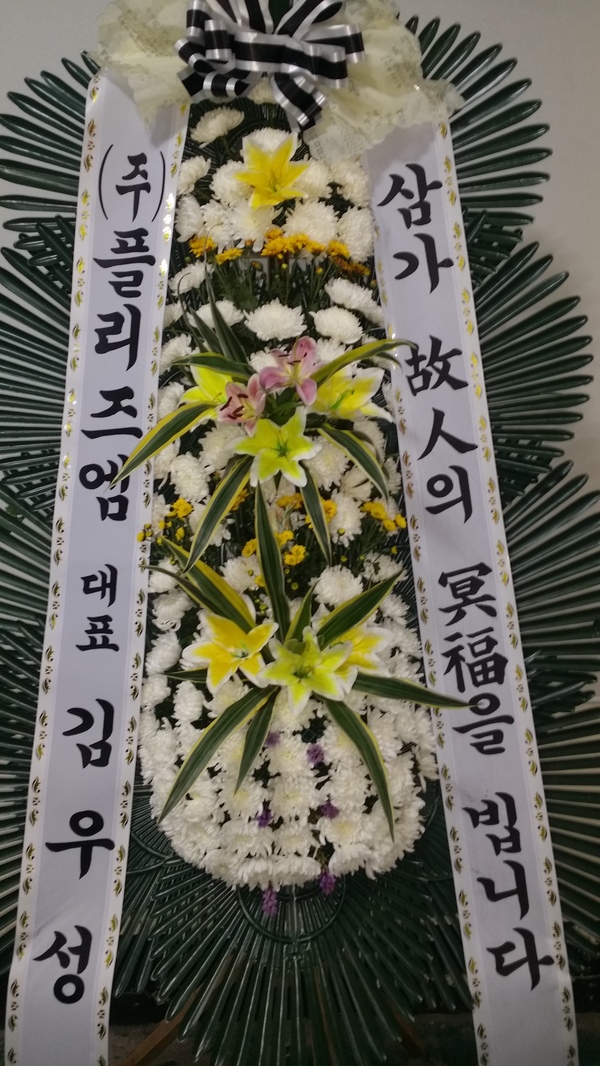 (주)플리즈엠 대표 김우성
삼가 故人의 冥福을 빕니다